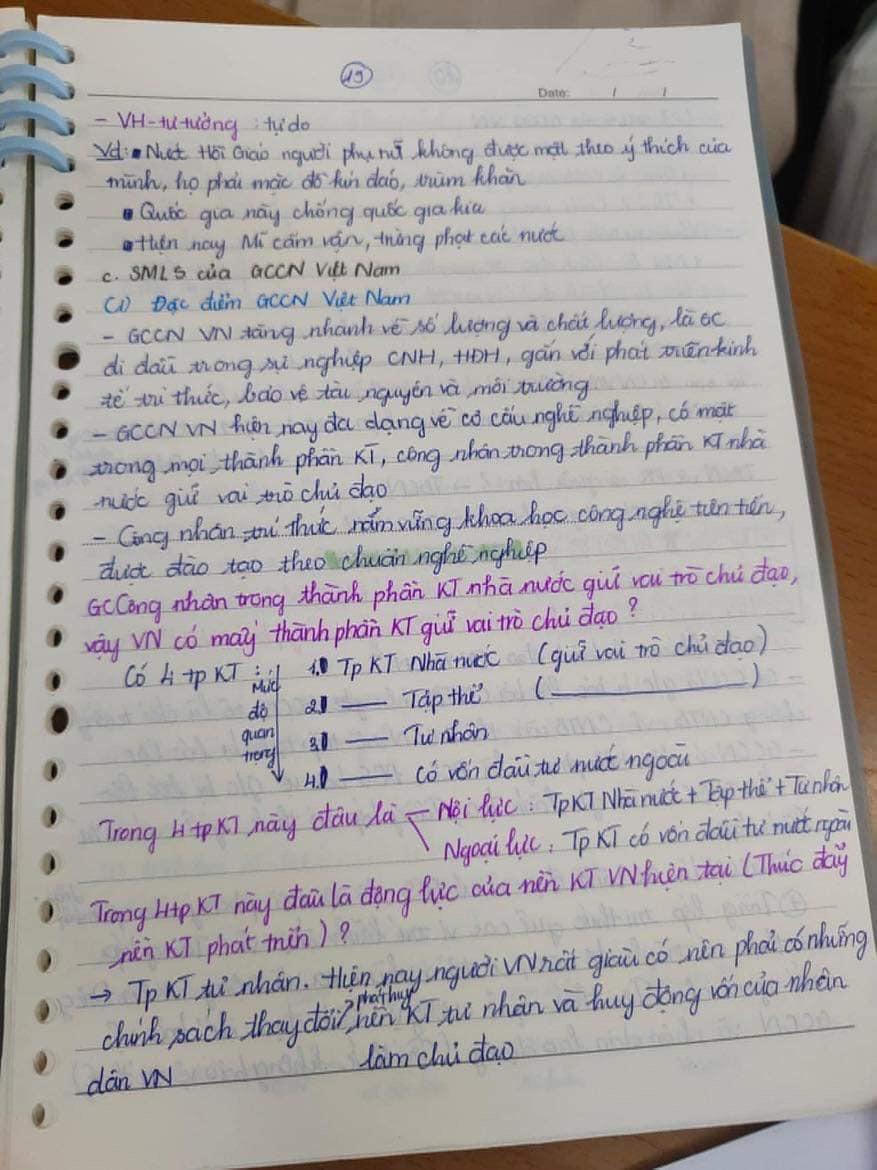 19
Date: / /
- VH-tư tưởng : tự do
Vd: Nước Hồi Giáo người phụ nữ không được mặc theo ý thích của
mình, họ phải mặc đồ kín đáo, trùm khăn
Quốc gia này chống quốc gia kia
Hiện nay Mĩ cấm vận, trừng phạt các nước
c. SMLS của GCCN Việt Nam
(1) Đặc điểm GCCN Việt Nam
- GCCN VN tăng nhanh về số lượng và chất lượng, là GC
đi đầu trong sự nghiệp CNH, HĐH, gắn với phát triển kinh
tế tri thức, bảo vệ tài nguyên và môi trường
- GCCN VN hiện nay đa dạng về cơ cấu nghề nghiệp, có mặt
trong mọi thành phần KT, công nhân trong thành phần KT nhà
nước giữ vai trò chủ đạo
- Công nhân trí thức nắm vững khoa học công nghệ tiên tiến,
được đào tạo theo chuẩn nghề nghiệp
GCCông nhân trong thành phần KT nhà nước giữ vai trò chủ đạo,
vậy VN có mấy thành phần KT giữ vai trò chủ đạo ?
Có 4 tp KT : Mức độ quan trọng
1. Tp KT Nhà nước (giữ vai trò chủ đạo)
2. — Tập thể ( — )
3. — Tư nhân
4. — Có vốn đầu tư nước ngoài
Trong 4 tp KT này đâu là - Nội lực : Tp KT Nhà nước + Tập thể + Tư nhân
Ngoại lực : Tp KT có vốn đầu tư nước ngoài
Trong 4 tp KT này đâu là động lực của nền KT VN hiện tại (Thúc đẩy
nền KT phát triển) ?
→ Tp KT tư nhân. Hiện nay người VN rất giàu có nên phải có những
chính sách thay đổi, phát huy nền KT tư nhân và huy động vốn của nhân
dân VN làm chủ đạo